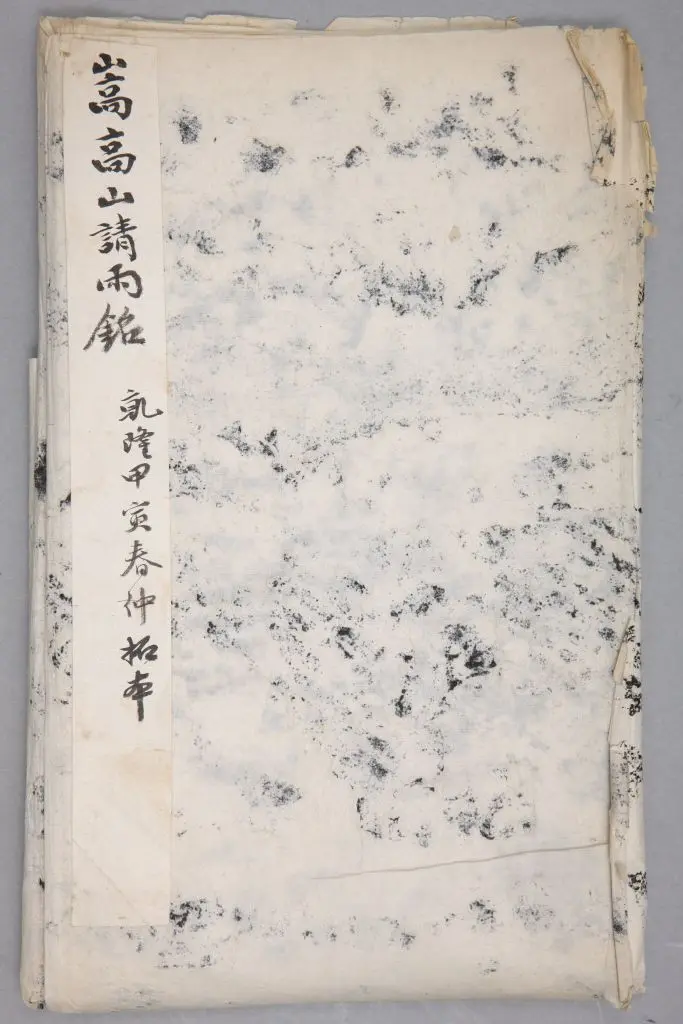 嵩高山請雨銘
乾隆甲寅春仲拓本